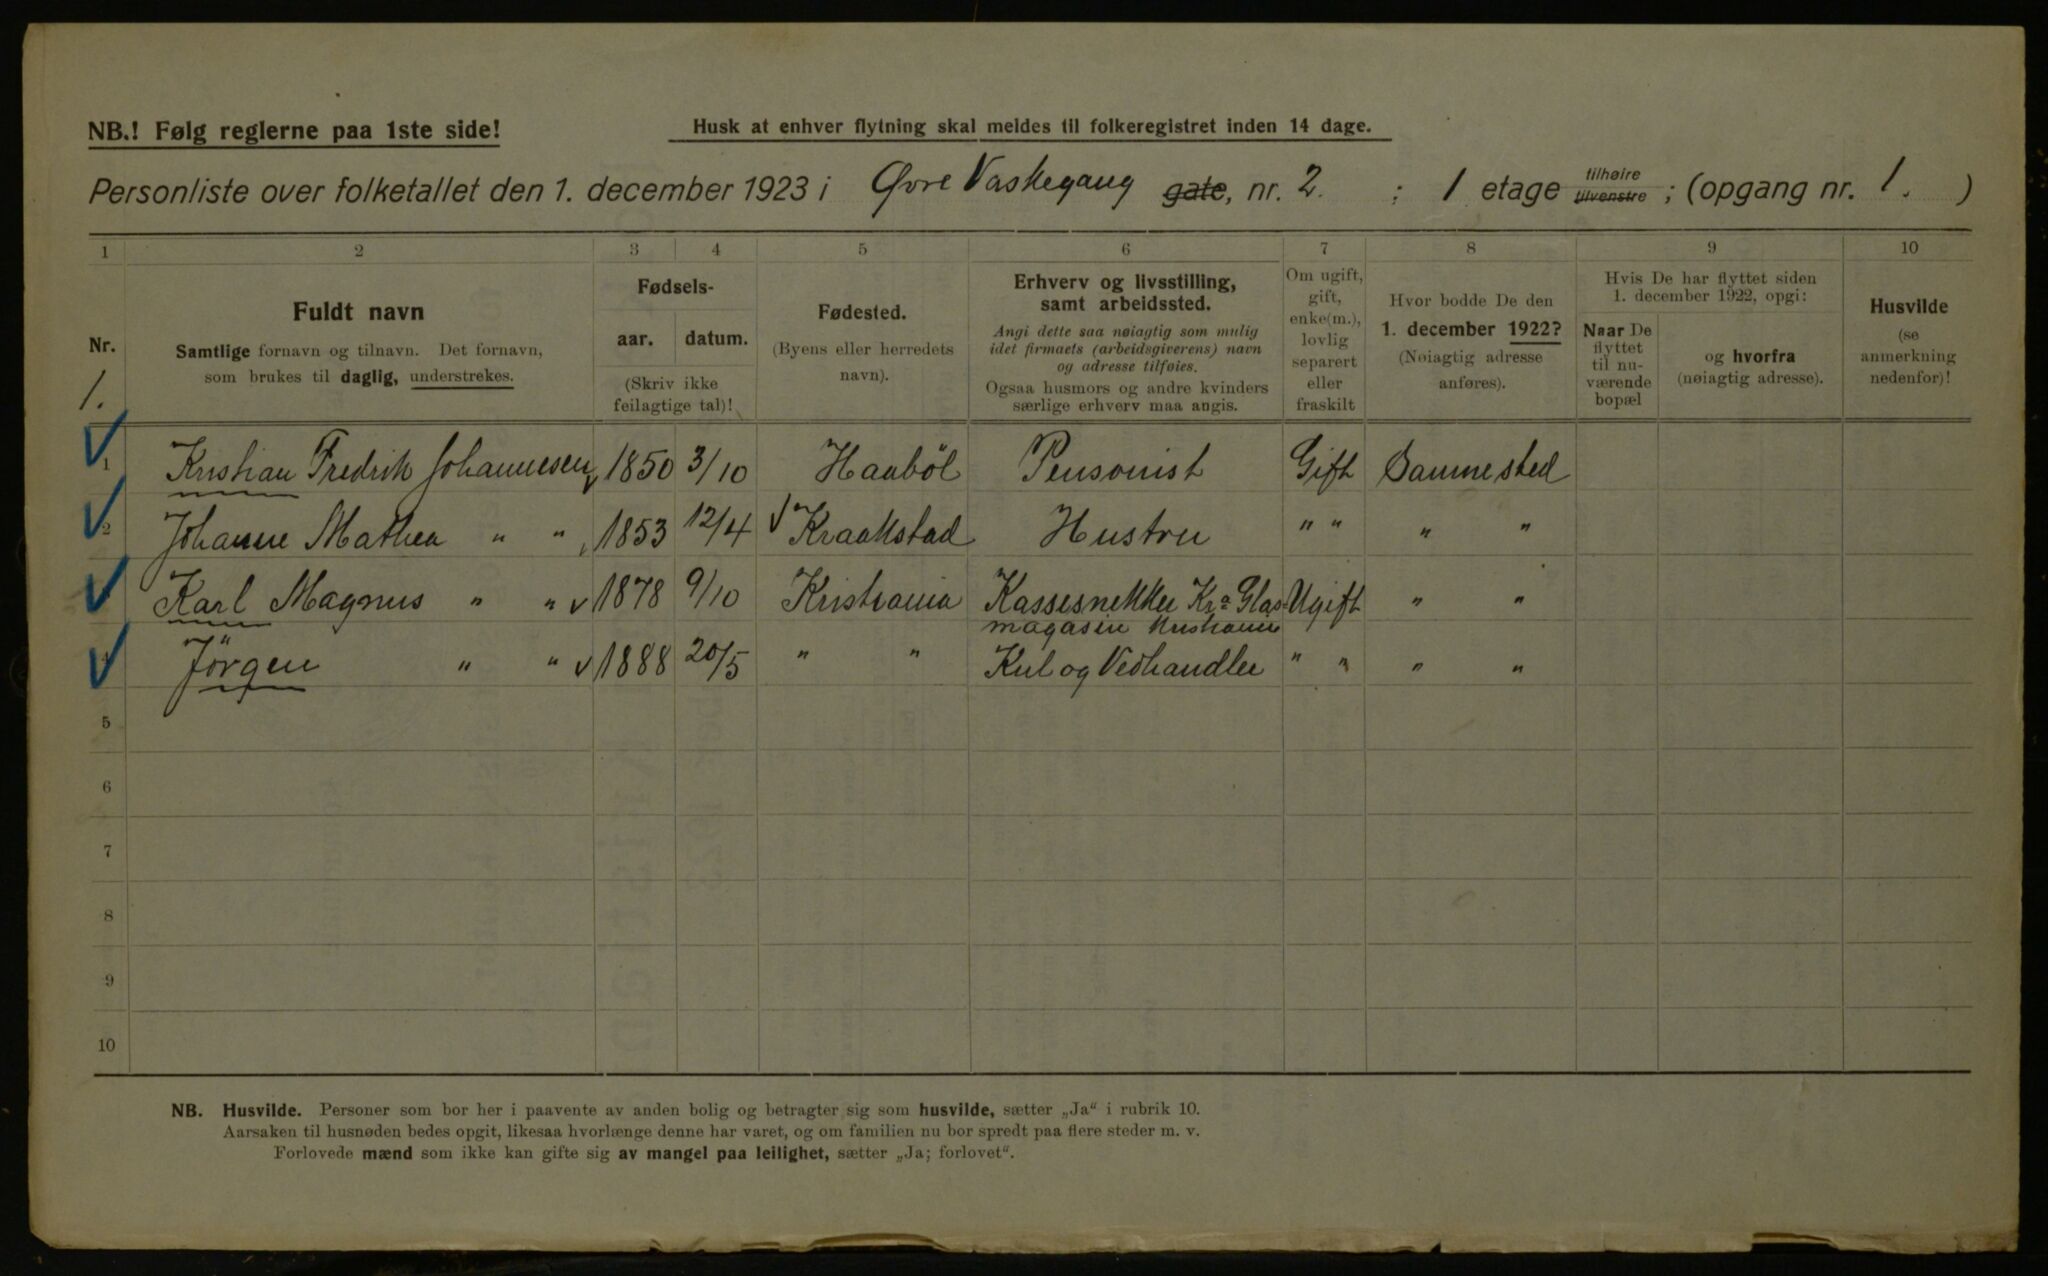 NB.! Følg reglerne paa 1ste side!
Husk at enhver flytning skal meldes til folkeregistret inden 14 dage.
Personliste over folketallet den 1. december 1923 i Øvre Vaskegang gate, nr. 2. ; 1 etage tilhøire tilvenstre ; (opgang nr. 1. )
1 2 3 4 5 6 7 8 9 10
Nr.
1.
Fuldt navn
Samtlige fornavn og tilnavn. Det fornavn,
som brukes til daglig, understrekes.
Fødsels-
aar. datum.
(Skriv ikke
feilagtige tal)!
Fødested.
(Byens eller herredets
navn).
Erhverv og livsstilling,
samt arbeidssted.
Angi dette saa nøiagtig som mulig
idet firmaets (arbeidsgiverens) navn
og adresse tilføies.
Ogsaa husmors og andre kvinders
særlige erhverv maa angis.
Om ugift,
gift,
enke(m.),
lovlig
separert
eller
fraskilt
Hvor bodde De den
1. december 1922?
(Nøiagtig adresse
anføres).
Hvis De har flyttet siden
1. december 1922, opgi:
Naar De
flyttet
til nu-
værende
bopæl
og hvorfra
(nøiagtig adresse).
Husvilde
(se
anmerkning
nedenfor)!
1 Kristian Fredrik Johannesen 1850 3/10 Haabøl Pensonist Gift Sammested
2 Johanne Mathea " " 1853 12/4 Kraakstad Hustru " " " "
Karl Magnus " " 1878 9/10 Kristiania Kassesnekker Kra Glas- Ugift " "
magasin Kristiania
4 Jörgen " " 1888 20/5 " " Kul og Vedhandler " " " "
5
6
7
8
9
10
NB. Husvilde. Personer som bor her i paavente av anden bolig og betragter sig som husvilde, sætter „Ja“ i rubrik 10.
Aarsaken til husnøden bedes opgit, likesaa hvorlænge denne har varet, og om familien nu bor spredt paa flere steder m. v.
Forlovede mænd som ikke kan gifte sig av mangel paa leilighet, sætter „Ja; forlovet“.